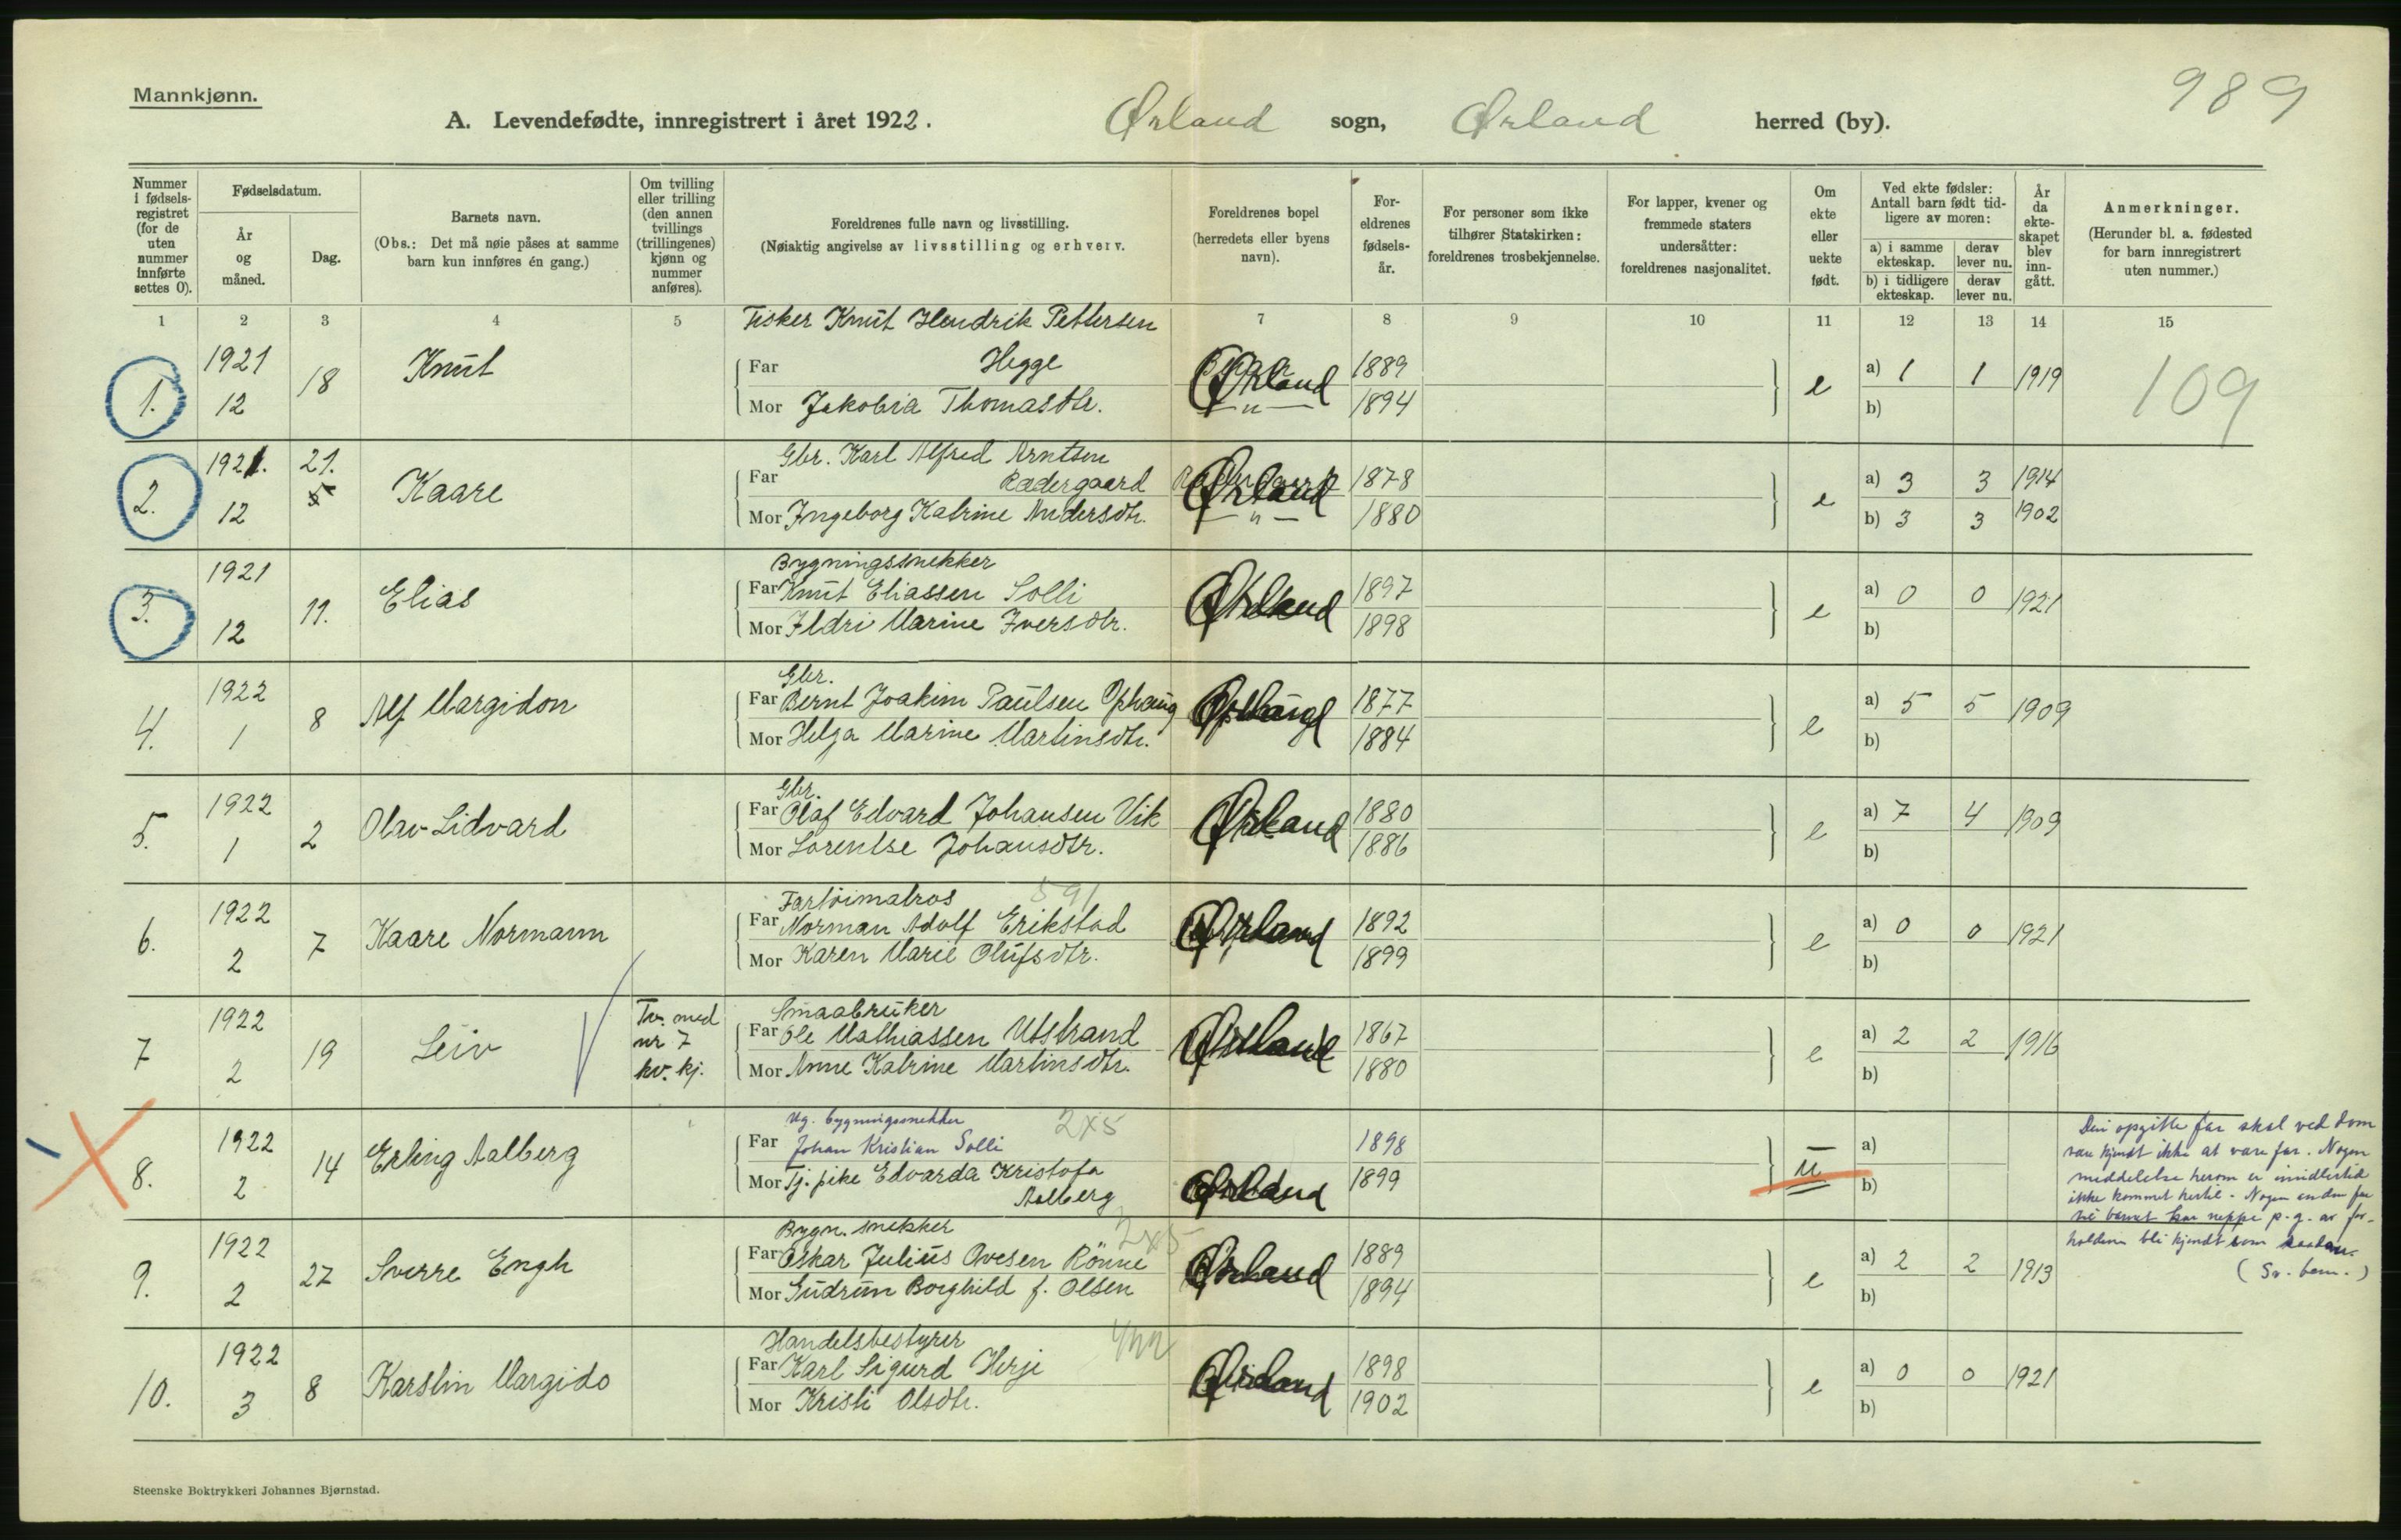 989
Mannkjønn.
A. Levendefødte, innregistrert i året 1922. Ørland sogn, Ørland herred (by).
Nummer i fødsels-registret (for de uten nummer innførte settes 0).
Fødselsdatum.
År og måned.
Dag.
Barnets navn.
(Obs.: Det må nøie påses at samme barn kun innføres én gang.)
Om tvilling eller trilling (den annen tvillings (trillingenes) kjønn og nummer anføres).
Foreldrenes fulle navn og livsstilling.
(Nøiaktig angivelse av livsstilling og erhverv.
Foreldrenes bopel (herredets eller byens navn).
For-eldrenes fødsels-år.
For personer som ikke tilhører Statskirken: foreldrenes trosbekjennelse.
For lapper, kvener og fremmede staters undersåtter: foreldrenes nasjonalitet.
Om ekte eller uekte født.
Ved ekte fødsler: Antall barn født tid-ligere av moren:
a) i samme ekteskap. derav lever nu.
b) i tidligere ekteskap. derav lever nu.
År da ekte-skapet blev inn-gått.
Anmerkninger.
(Herunder bl. a. fødested for barn innregistrert uten nummer.)
1 2 3 4 5 7 8 9 10 11 12 13 14 15
Fisker Knut Hendrik Pettersen
1. 1921 12 18 Knut Far Hegge Ørland 1889 e a) 1 1 1919 109
Mor Jakobia Thomasdtr. — " — 1894 b)
Gbr. Karl Alfred Arntsen
2. 1921. 12 21. 5 Kaare Far Rædergaard Ørland 1878 e a) 3 3 1914
Mor Ingeborg Katrine Andersdtr. — " — 1880 b) 3 3 1902
Bygningssnekker
3. 1921 12 11. Elias Far Knut Eliassen Solli Ørland 1897 e a) 0 0 1921
Mor Ildri Marine Iversdtr. 1898 b)
Gbr.
4. 1922 1 8 Alf Margidon Far Bernt Joakim Paulsen Ophaug 1877 e a) 5 5 1909
Mor Helga Marine Martinsdtr. 1884 b)
Gbr.
5. 1922 1 2 Olav Lidvard Far Olaf Edvard Johansen Vik Ørland 1880 e a) 7 4 1909
Mor Lorentse Johansdtr. 1886 b)
Fartöimatros 591
6. 1922 2 7 Kaare Normann Far Norman Adolf Erikstad Ørland 1892 e a) 0 0 1921
Mor Karen Marie Olufsdtr. 1899 b)
Smaabruker
7 1922 2 19 Leiv Tv. med nr 7 kv. kj. Far Ole Mathiassen Utstrand Ørland 1867 e a) 2 2 1916
Mor Anne Katrine Martinsdtr. 1880 b)
Ug. bygningssnekker 2x5
8. 1922 2 14 Erling Aalberg Far Johan Kristian Solli 1898 u a)
Mor Tj. pike Edvarda Kristofa Aalberg Ørland 1899 b)
Den opgitte far skal ved dom
være kjendt ikke at være far. Nogen
meddelelse herom er imidlertid
ikke kommet hertil. Nogen anden far
til barnet kan neppe p. g. av for-
holdene bli kjendt som
(Sr. bem.)
Bygn. snekker 2x5
9. 1922 2 27 Sverre Engh Far Oskar Julius Ovesen Rönne Ørland 1889 e a) 2 2 1913
Mor Gudrun Borghild f. Olsen 1894 b)
Handelsbestyrer
10. 1922 3 8 Karstin Margido Far Karl Sigurd Herje Ørland 1898 e a) 0 0 1921
Mor Kristi Olsdtr. 1902 b)
Steenske Boktrykkeri Johannes Bjørnstad.